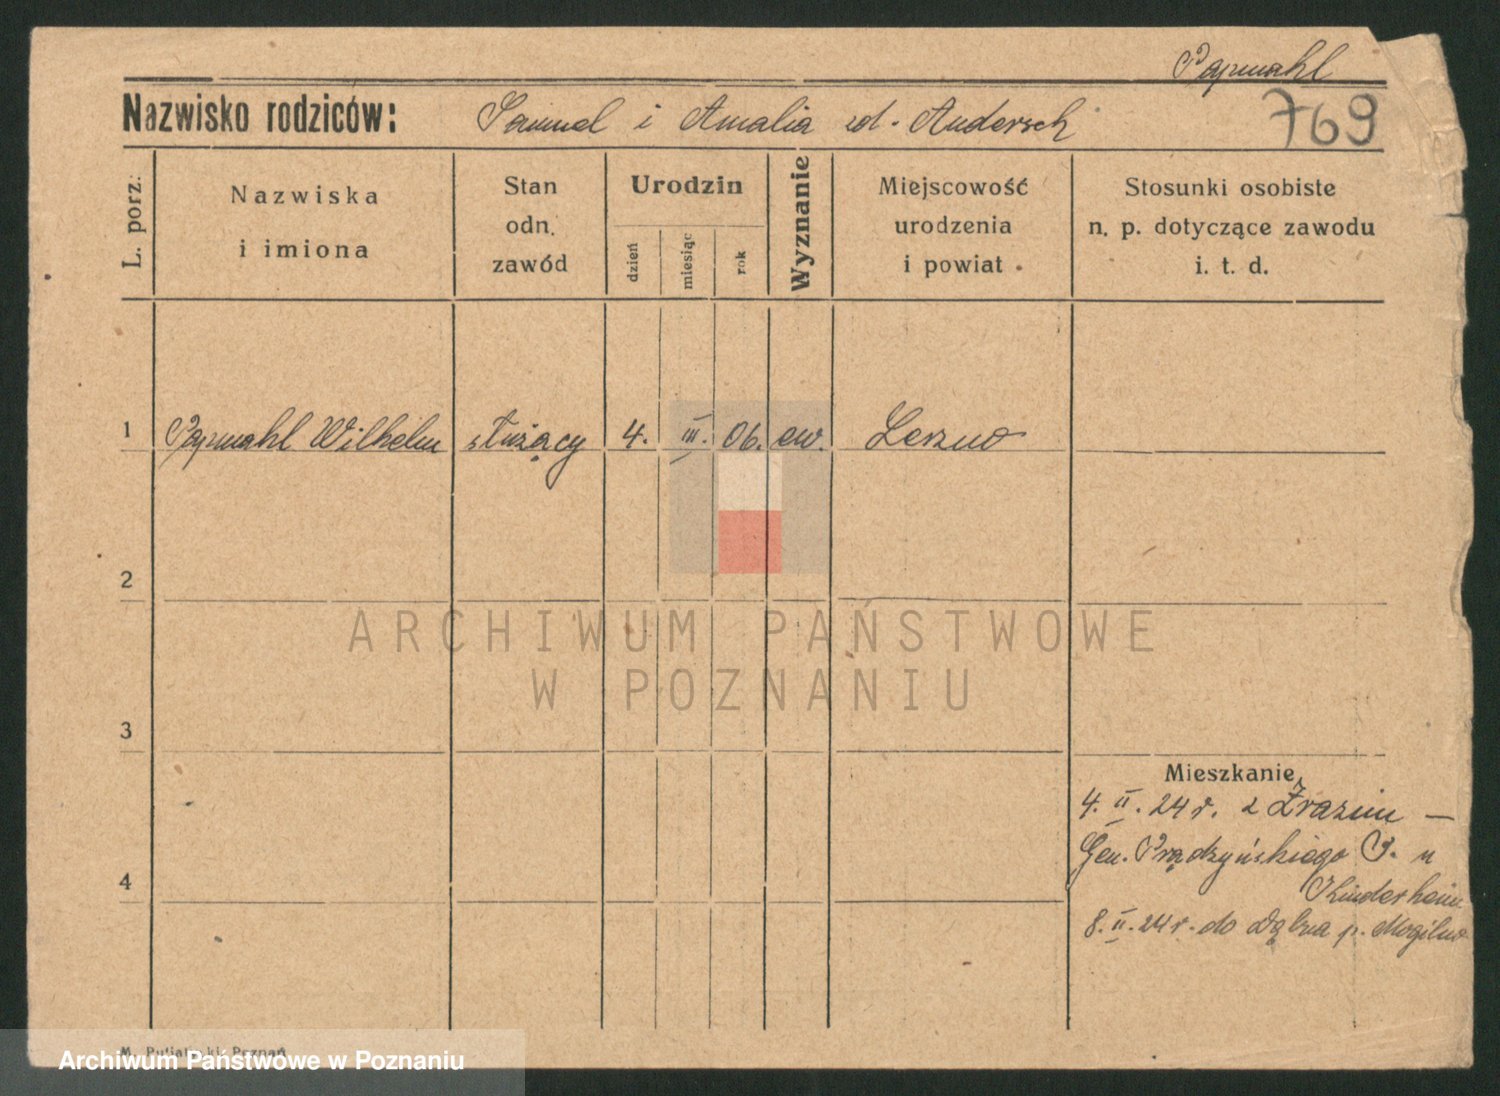 Papmahl
Nazwisko rodziców: Samuel i Amalia zd. Andersch
769
L. porz.
Nazwiska
i imiona
Stan
odn.
zawód
Urodzin
dzień
miesiąc
rok
Wyznanie
Miejscowość
urodzenia
i powiat
Stosunki osobiste
n. p. dotyczące zawodu
i. t. d.
1 Papmahl Wilhelm służący 4. III. 06. ew. Leszno
2
3
4
Mieszkanie
4. II. 24 r. z —
Gen. Prądzyńskiego 3. u
Kinderheim
8. II. 24 r. do p. Mogilno
ARCHIWUM PAŃSTWOWE
W POZNANIU
Poznań
Archiwum Państwowe w Poznaniu